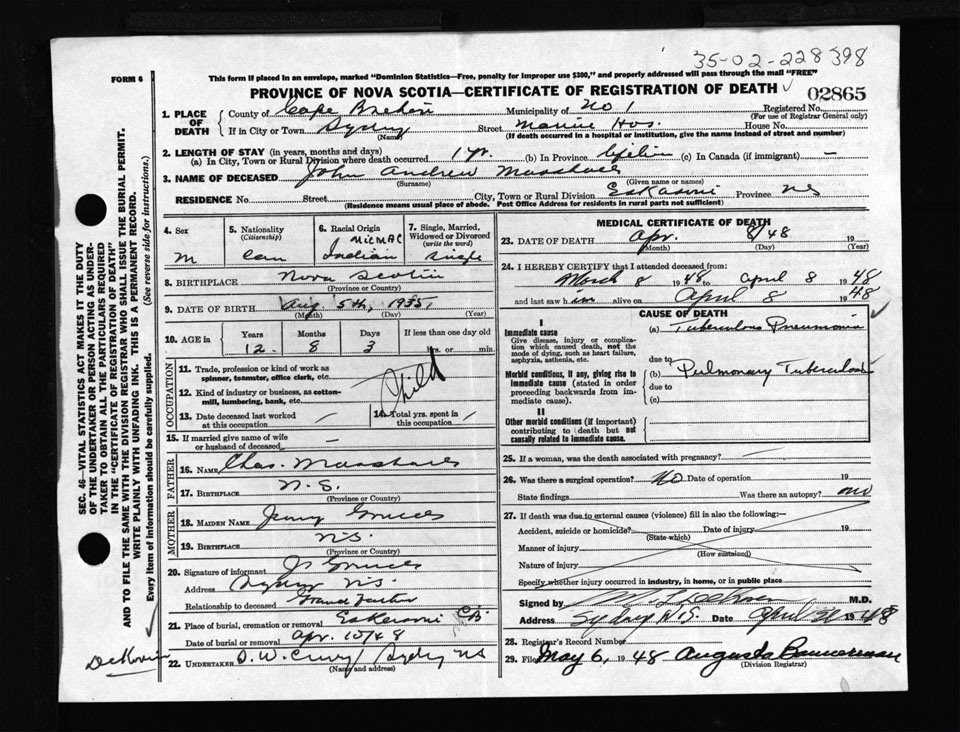 35-02-228398
FORM 6
This form if placed in an envelope, marked "Dominion Statistics—Free, penalty for improper use $300," and properly addressed will pass through the mail "FREE"
PROVINCE OF NOVA SCOTIA—CERTIFICATE OF REGISTRATION OF DEATH
02865
1. PLACE OF DEATH
County of Cape Breton Municipality of No 1 Registered No.
(For use of Registrar General only)
If in City or Town Sydney Street Marine Hos. House No.
(Name) (If death occurred in a hospital or institution, give the name instead of street and number)
2. LENGTH OF STAY (in years, months and days)
(a) In City, Town or Rural Division where death occurred 1 yr. (b) In Province (c) In Canada (if immigrant) —
3. NAME OF DECEASED John Andrew
(Surname) (Given name or names)
RESIDENCE No. Street City, Town or Rural Division Eskasoni Province NS
(Residence means usual place of abode. Post Office Address for residents in rural parts not sufficient)
4. Sex
M
5. Nationality
(Citizenship)
Can
6. Racial Origin
MicMAC
Indian
7. Single, Married, Widowed or Divorced
(write the word)
Single
8. BIRTHPLACE Nova Scotia
(Province or Country)
9. DATE OF BIRTH Aug 5th, 1935
(Month) (Day) (Year)
10. AGE in
Years Months Days If less than one day old
12 8 3 hrs. or min.
OCCUPATION
11. Trade, profession or kind of work as spinner, teamster, office clerk, etc.
Child
12. Kind of industry or business, as cotton-mill, lumbering, bank, etc.
13. Date deceased last worked at this occupation /
14. Total yrs. spent in this occupation /
15. If married give name of wife or husband of deceased —
FATHER
16. Name Chas.
17. Birthplace N.S.
(Province or Country)
MOTHER
18. Maiden Name
19. Birthplace N.S.
(Province or Country)
20. Signature of informant
Address Sydney N.S.
Relationship to deceased Grand father
21. Place of burial, cremation or removal Eskasoni CB
Date of burial or removal Apr. 10/48
22. UNDERTAKER Sydney NS
(Name and address)
MEDICAL CERTIFICATE OF DEATH
23. DATE OF DEATH Apr. 8/48 19
(Month) (Day) (Year)
24. I HEREBY CERTIFY that I attended deceased from:
March 8 1948 to April 8 1948
and last saw him alive on April 8 1948
CAUSE OF DEATH
I
Immediate cause
Give disease, injury or complication which caused death, not the mode of dying, such as heart failure, asphyxia, asthenia, etc.
(a) Tuberculous Pneumonia
due to
Morbid conditions, if any, giving rise to immediate cause (stated in order proceeding backwards from immediate cause).
(b) Pulmonary Tuberculosis
due to
(c)
II
Other morbid conditions (if important) contributing to death but not causally related to immediate cause.
25. If a woman, was the death associated with pregnancy? —
26. Was there a surgical operation? No Date of operation 19
State findings Was there an autopsy? no
27. If death was due to external causes (violence) fill in also the following:—
Accident, suicide or homicide? Date of injury 19
(State which)
Manner of injury
(How sustained)
Nature of injury
Specify whether injury occurred in industry, in home, or in public place
Signed by M.D.
Address Sydney N.S. Date April 1948
28. Registrar's Record Number
29. Filed May 6, 1948 Augusta Bannerman
(Division Registrar)
SEC. 46—VITAL STATISTICS ACT MAKES IT THE DUTY
OF THE UNDERTAKER OR PERSON ACTING AS UNDER-
TAKER TO OBTAIN ALL THE PARTICULARS REQUIRED
IN THE "CERTIFICATE OF REGISTRATION OF DEATH"
AND TO FILE THE SAME WITH THE DIVISION REGISTRAR WHO SHALL ISSUE THE BURIAL PERMIT.
WRITE PLAINLY WITH UNFADING INK. THIS IS A PERMANENT RECORD.
Every item of information should be carefully supplied. (See reverse side for instructions.)